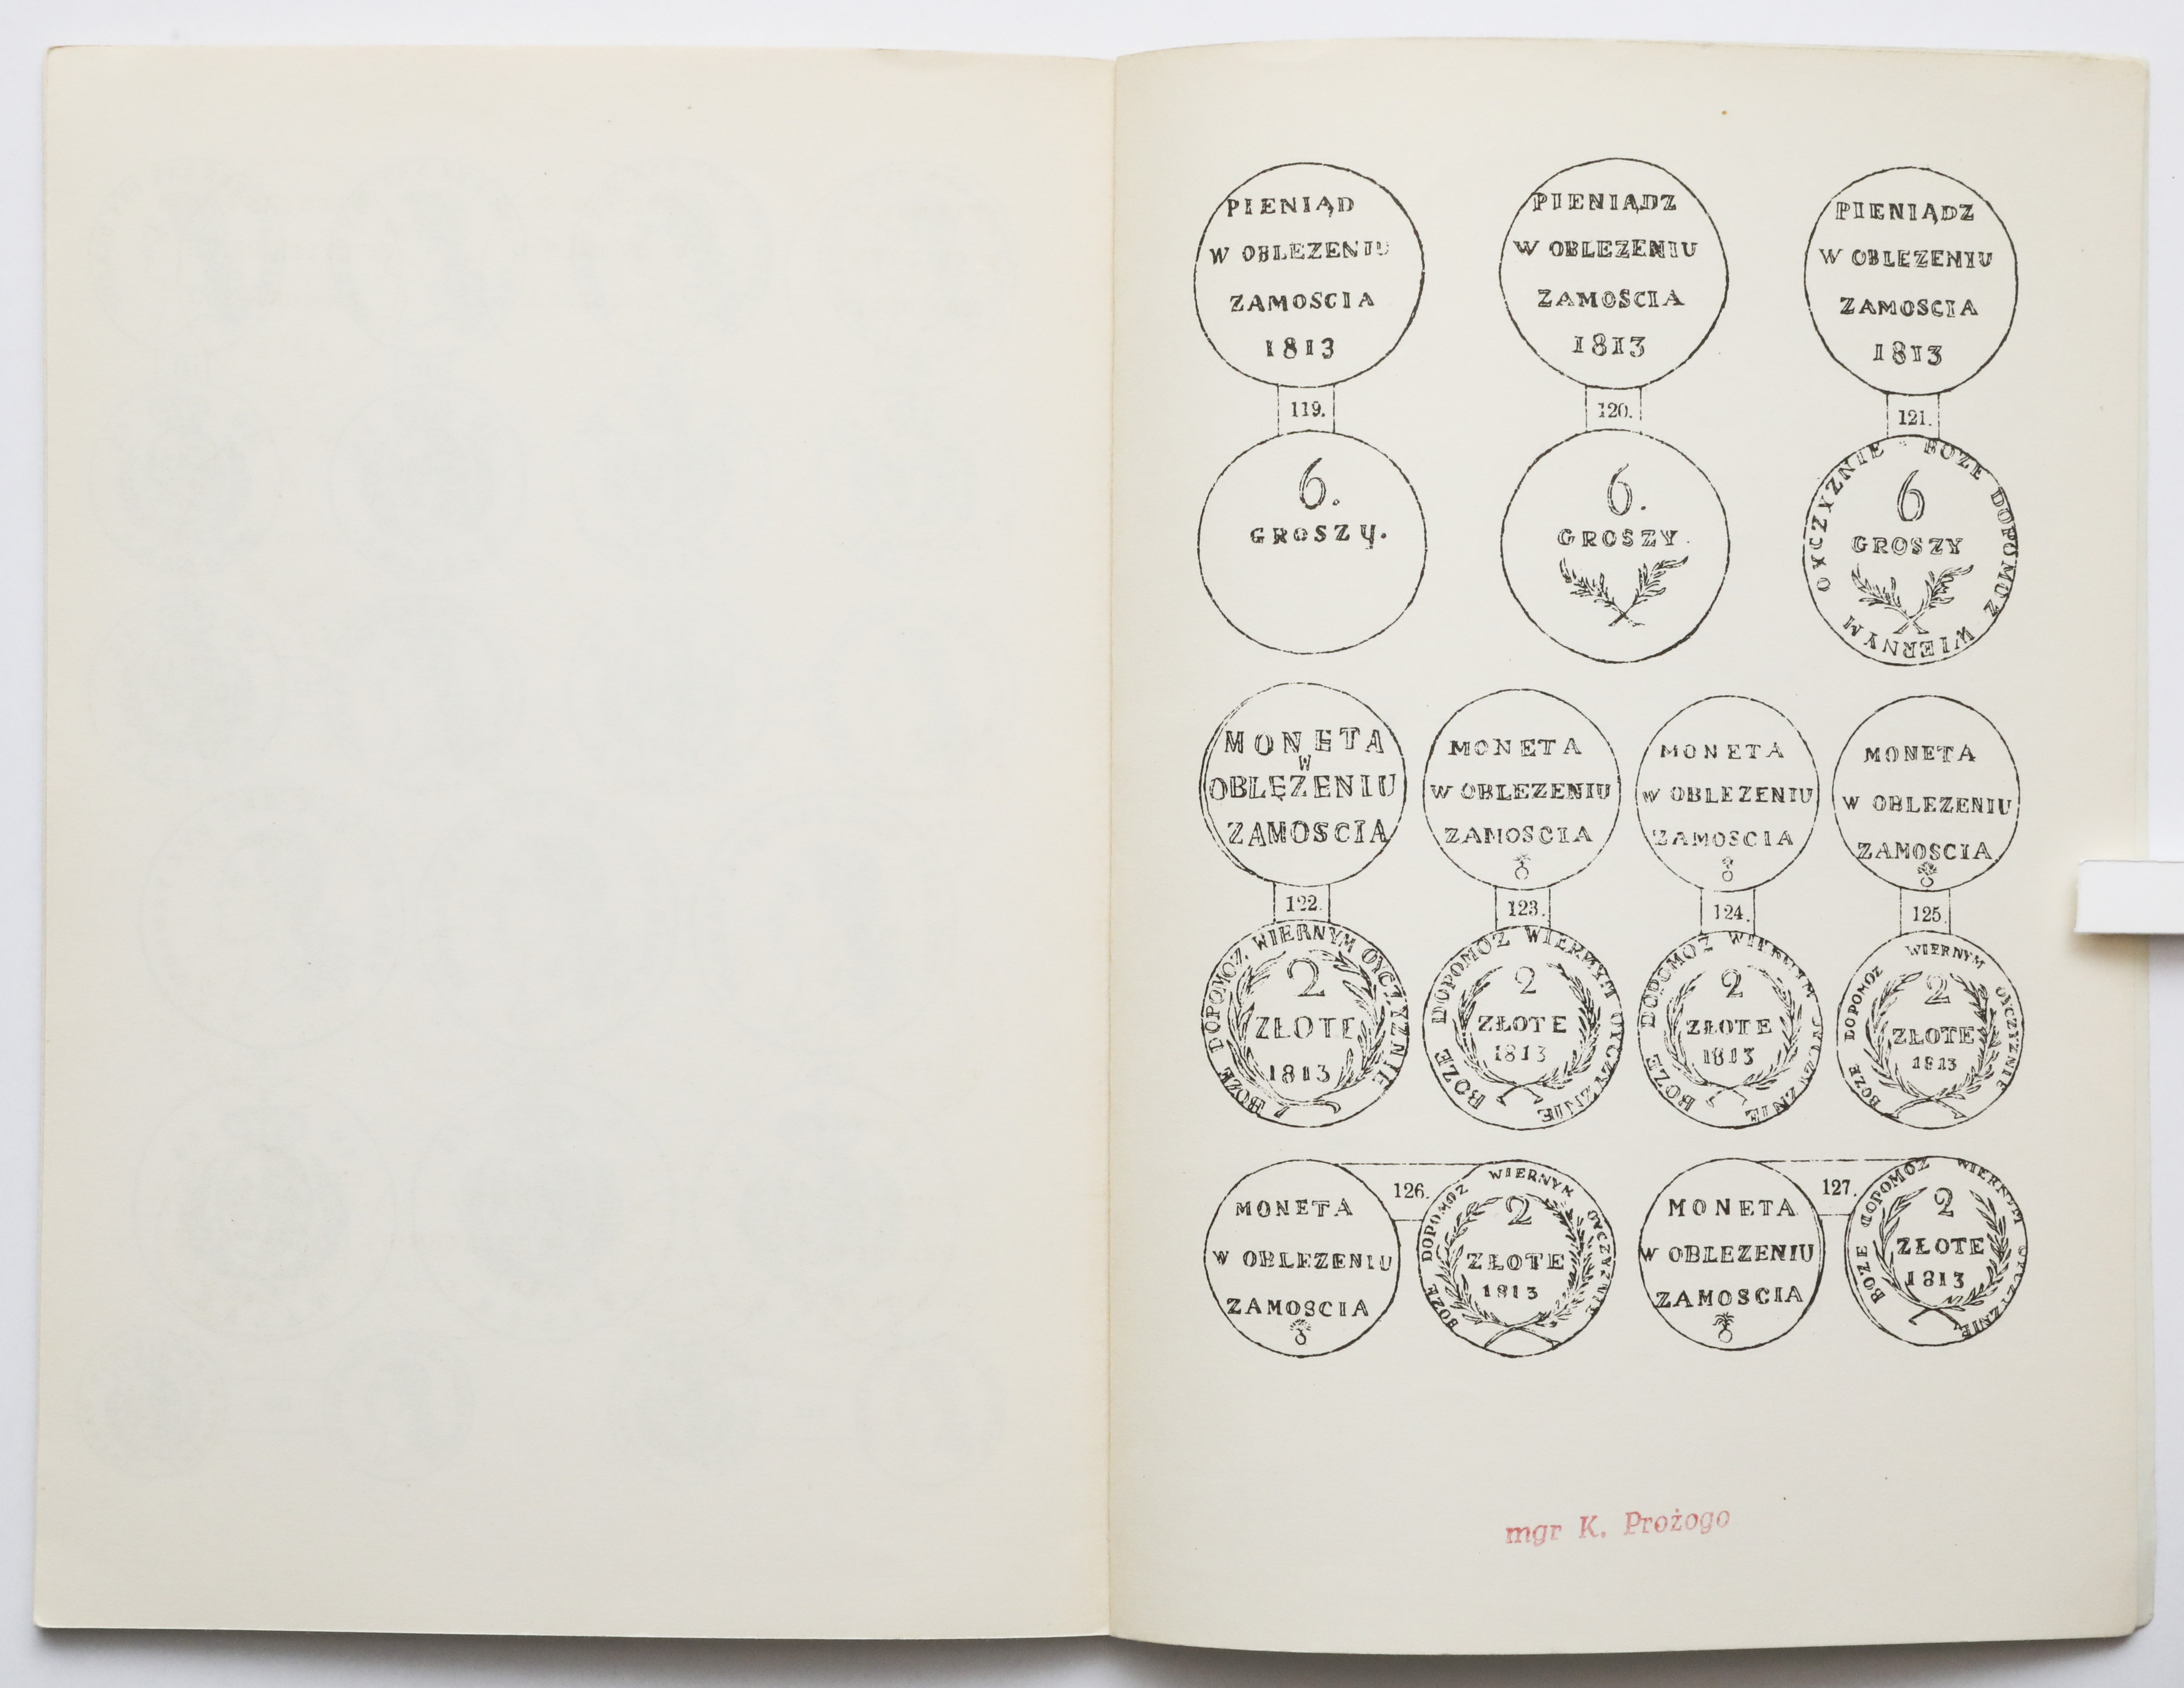 PIENIĄD
W OBLEZENIU
ZAMOSCIA
1813
119.
6.
GROSZY.
PIENIĄDZ
W OBLEZENIU
ZAMOSCIA
1813
120.
6.
GROSZY.
PIENIĄDZ
W OBLEZENIU
ZAMOSCIA
1813
121.
BOZE DOPOMOZ WIERNYM OYCZYZNIE
6
GROSZY
MONETA
W
OBLĘŻENIU
ZAMOSCIA
122.
BOZE DOPOMOZ WIERNYM OYCZYZNIE
2
ZŁOTE
1813
MONETA
W OBLEZENIU
ZAMOSCIA
123.
BOZE DOPOMOZ WIERNYM OYCZYZNIE
2
ZŁOTE
1813
MONETA
W OBLEZENIU
ZAMOSCIA
124.
BOZE DOPOMOZ WIERNYM OYCZYZNIE
2
ZŁOTE
1813
MONETA
W OBLEZENIU
ZAMOSCIA
125.
BOZE DOPOMOZ WIERNYM OYCZYZNIE
2
ZŁOTE
1813
MONETA
W OBLEZENIU
ZAMOSCIA
126.
BOZE DOPOMOZ WIERNYM OYCZYZNIE
2
ZŁOTE
1813
MONETA
W OBLEZENIU
ZAMOSCIA
127.
BOZE DOPOMOZ WIERNYM OYCZYZNIĘ
2
ZŁOTE
1813
mgr K. Prożogo